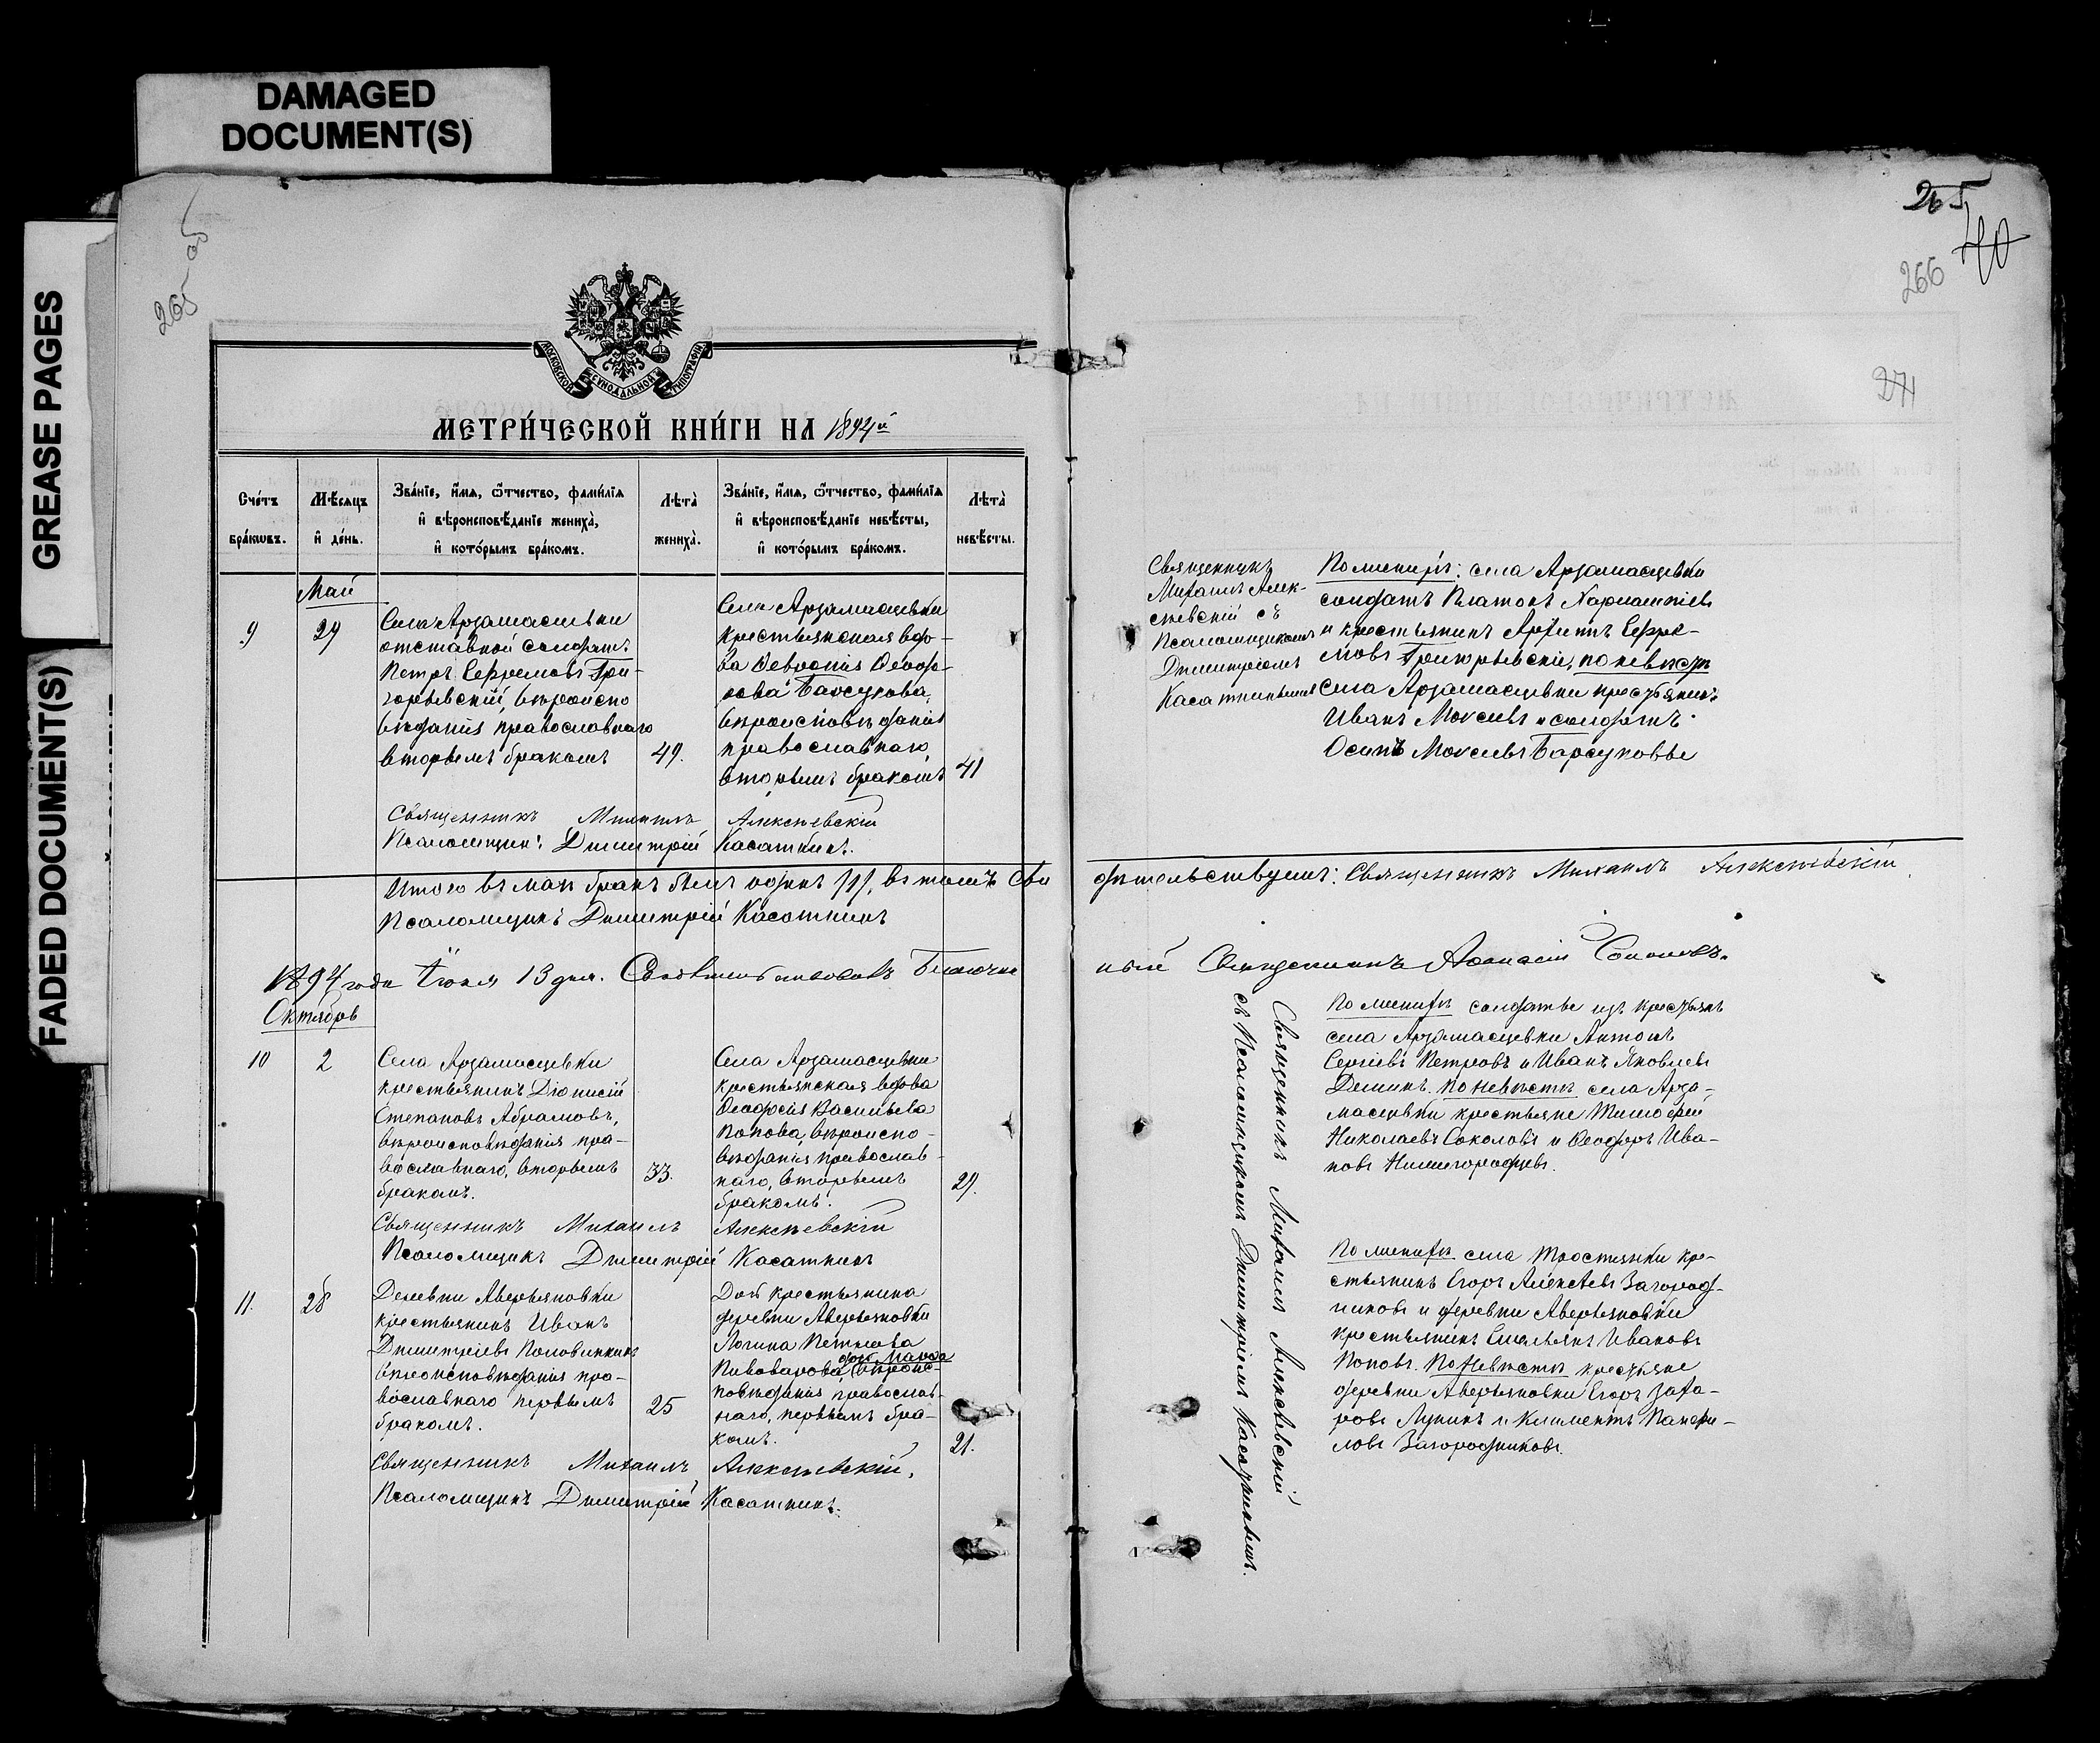 DAMAGED
DOCUMENT(S)
GREASE PAGES
FADED DOCUMENT(S)
265 об
МОСКОВСКОЙ СѴНОДАЛЬНОЙ ТИПОГРАФІИ
МЕТРИ́ЧЕСКОЙ КНИ́ГИ НА 1894й
Сче́тъ
бра́кѡвъ.
Мѣ́сяцъ
и҆ де́нь.
Зва́нїе, и҆́мѧ, ѻ҆́тчество, фами́лїѧ
и҆ вѣроисповѣ́данїе жениха̀,
и҆ кото́рымъ бра́комъ.
Лѣта̀
жениха̀.
Зва́нїе, и҆́мѧ, ѻ҆́тчество, фами́лїѧ
и҆ вѣроисповѣ́данїе невѣ́сты,
и҆ кото́рымъ бра́комъ.
Лѣта̀
невѣ́сты.
Май
9
29
Села Арзамасцевки
отставной солдатъ
Петръ Ефремовъ Гри-
горьевскій, вѣроиспо
вѣданія православнаго
вторымъ бракомъ
49.
Села Арзамасцевки
крестьянская вдо-
ва Февронія Ѳеодо-
рова Барсукова,
вѣроисповѣданія
православнаго,
вторымъ бракомъ
41
Священникъ Михаилъ Алексѣевскій
Псаломщикъ: Димитрій Касаткинъ.
Итого въ маѣ бракъ былъ одинъ /1/, въ томъ сви
Псаломщикъ Димитрій Касаткинъ
1894 года Іюня 13 дня. Свидѣтельствовалъ Благочин
Октябрь
10
2
Села Арзамасцевки
крестьянинъ Діонисій
Степановъ Абрамовъ,
вѣроисповѣданія пра-
вославнаго, вторымъ
бракомъ.
33.
Села Арзамасцевки
крестьянская вдова
Ѳеодосія Васильева
Попова, вѣроиспо-
вѣданія православ-
наго, вторымъ
бракомъ.
29.
Священникъ Михаилъ Алексѣевскій
Псаломщикъ Димитрій Касаткинъ
11.
28
Деревни Аверьяновки
крестьянинъ Иванъ
Димитріевъ Половинкинъ
вѣроисповѣданія пра-
вославнаго первымъ
бракомъ.
25
Дочь крестьянина
деревни Аверьяновки
Логина
Пивоварова, вѣроис-
повѣданія православ-
наго, первымъ бра-
комъ.
21.
Священникъ Михаилъ Алексѣевскій,
Псаломщикъ Димитрій Касаткинъ.
265
40
266
271
Священникъ
Михаилъ Алек-
сѣевскій съ
Псаломщикомъ
Димитріемъ
Касаткинымъ
По женихѣ: села Арзамасцевки
солдатъ Платонъ
и крестьянинъ Архипъ Ефре-
мовъ Григорьевскіе, по невѣстѣ
села Арзамасцевки крестьянинъ
Иванъ Моисеевъ и солдатъ
Осипъ Моисеевъ Барсуковы
дѣтельствуемъ: Священникъ Михаилъ Алексѣевскій
ный Священникъ Аѳанасій Соколовъ.
Священникъ Михаилъ Алексѣевскій
съ Псаломщикомъ Димитріемъ Касаткинымъ.
По женихѣ солдаты изъ крестьянъ
села Арзамасцевки Антонъ
Сергіевъ Петровъ и Иванъ Яковлевъ
Деминъ. по невѣстѣ села Арза-
масцевки крестьяне Тимоѳей
Николаевъ Соколовъ и Ѳеодоръ Ива-
новъ Нижегородцевъ.
По женихѣ села Тростянки кре-
стьянинъ Егоръ Алексѣевъ Загород-
никовъ и деревни Аверьяновки
крестьянинъ Емельянъ Ивановъ
Поповъ. По невѣстѣ крестьяне
деревни Аверьяновки Егоръ Заха-
ровъ Лунинъ и Климентъ Панфи-
ловъ Загородниковъ.